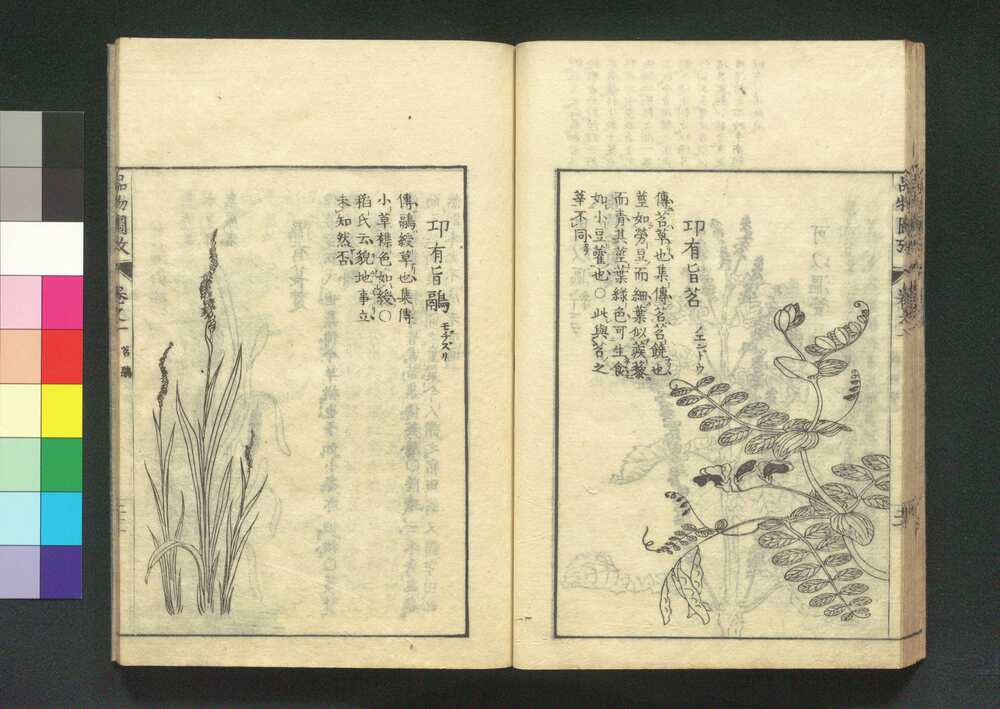 卭有旨苕 ノエンドウ
傳苕草也集傳苕苕饒也
莖如勞豆而細葉似蒺藜
而青其莖葉綠色可生食
如小豆藿也○此與苕之
華不同
品物圖攷
卷之一
苕 鷊
卭有旨鷊 モヂズリ
傳鷊綬草也集傳
小草襍色如綬○
稻氏云貌地事立
未知然否